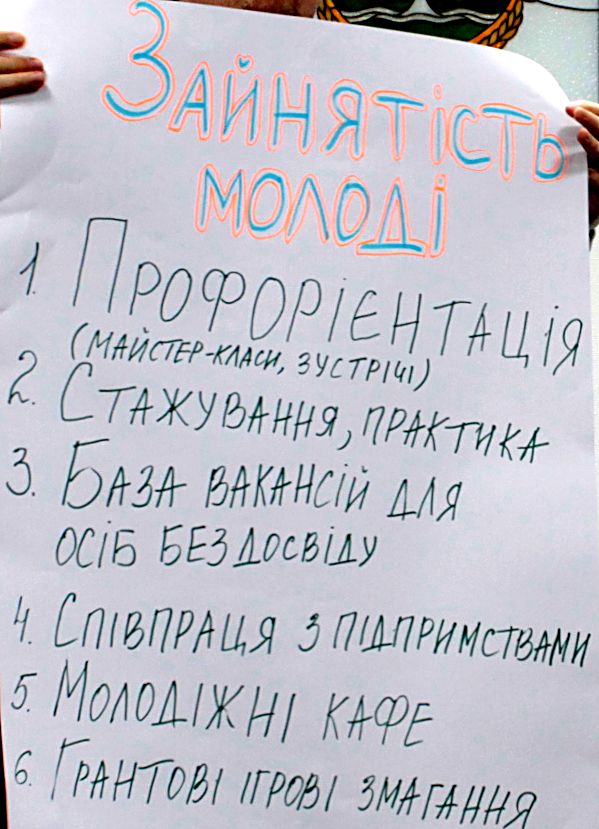 Зайнятість
молоді
1. Профорієнтація
(майстер-класи, зустрічі)
2. Стажування, практика
3. База вакансій для
осіб без досвіду
4. Співпраця з підпримствами
5. Молодіжні кафе
6. Грантові ігрові змагання